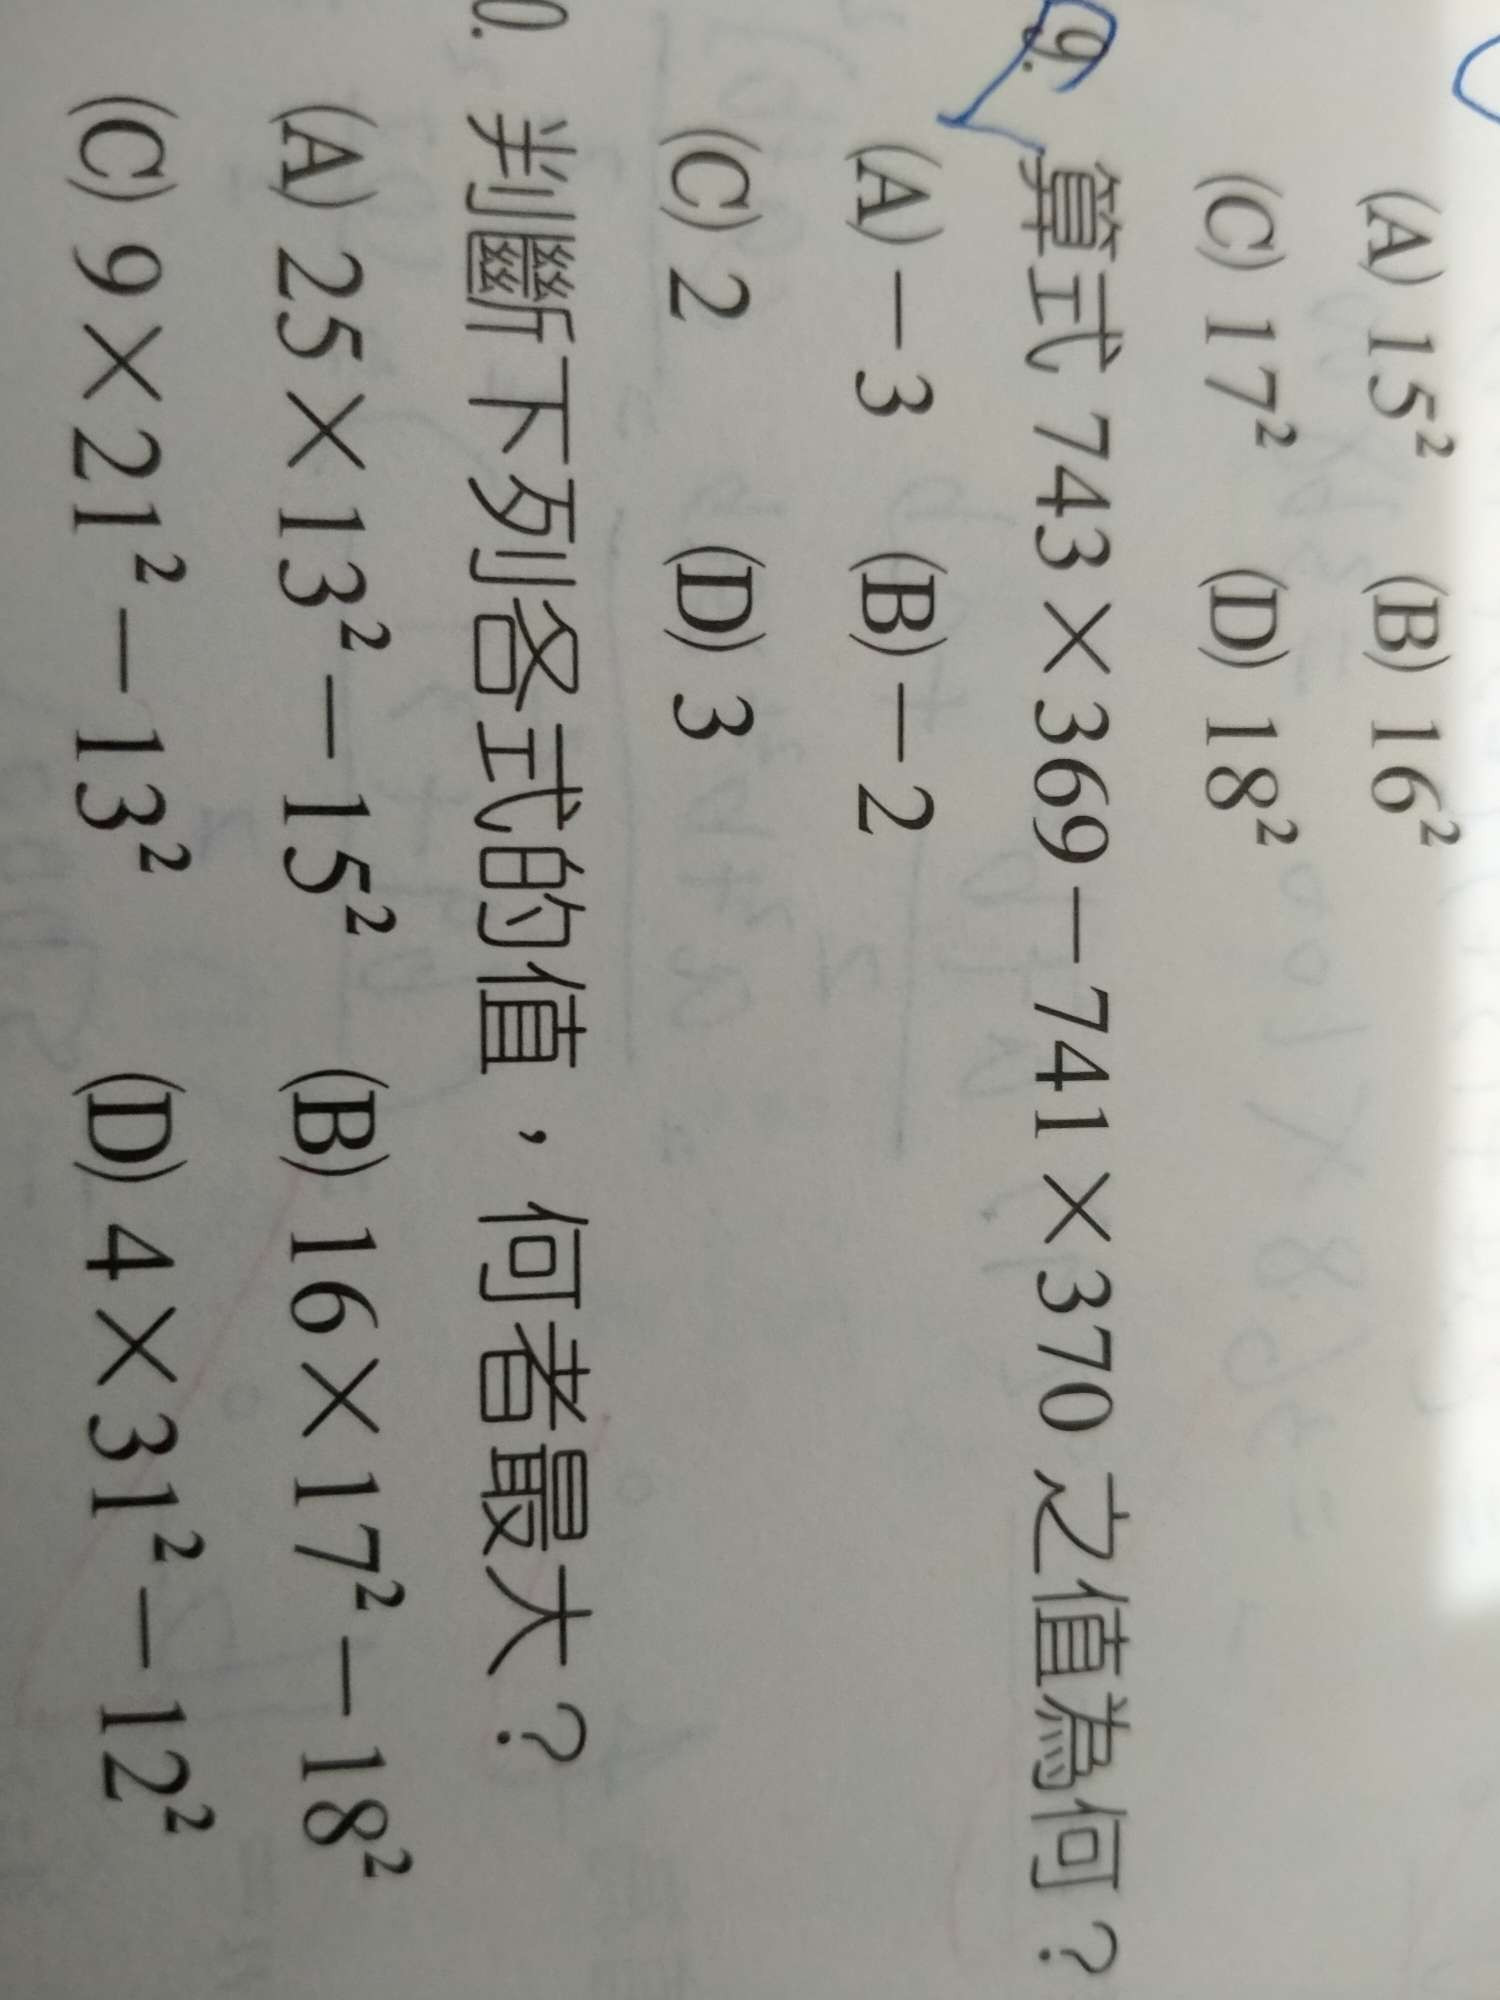 (A) 15² (B) 16²
(C) 17² (D) 18²
9. 算式 743×369－741×370 之值為何？
(A)－3 (B)－2
(C) 2 (D) 3
0. 判斷下列各式的值，何者最大？
(A) 25×13²－15² (B) 16×17²－18²
(C) 9×21²－13² (D) 4×31²－12²